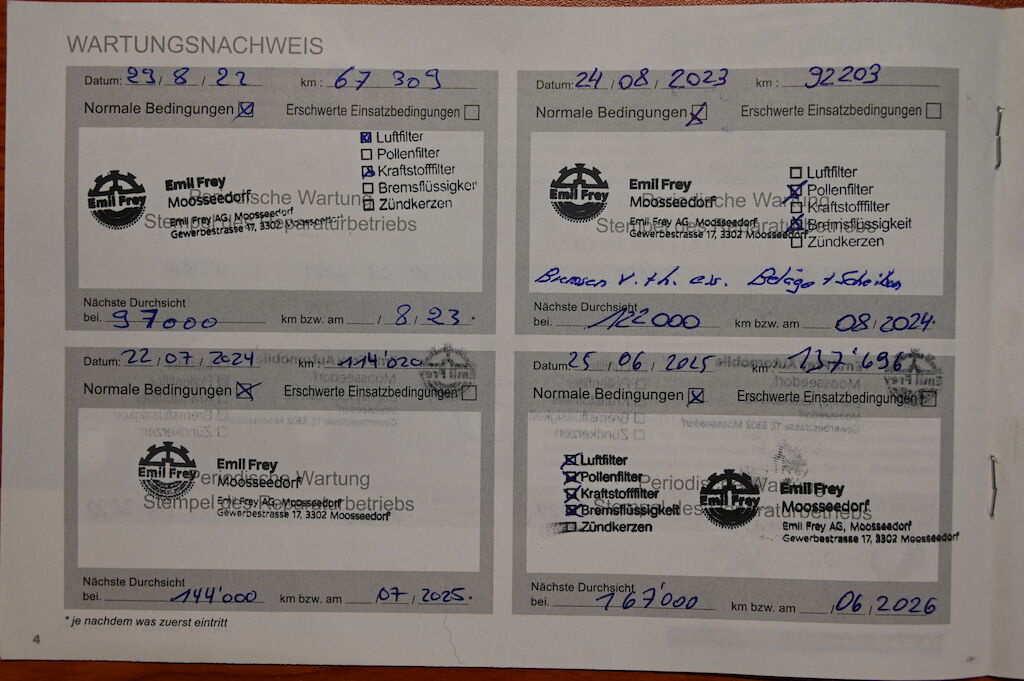 WARTUNGSNACHWEIS
Datum: 29 / 8 / 22 km : 67 309
Normale Bedingungen ☒ Erschwerte Einsatzbedingungen ☐
☒ Luftfilter
☐ Pollenfilter
☒ Kraftstofffilter
☐ Bremsflüssigkeit
☐ Zündkerzen
Emil Frey
Emil Frey
Moosseedorf
Emil Frey AG, Moosseedorf
Gewerbestrasse 17, 3302 Moosseedorf
Periodische Wartung
Stempel des Reparaturbetriebs
Nächste Durchsicht
bei. 97000 km bzw. am / 8 / 23.
Datum: 24 / 08 / 2023 km : 92203
Normale Bedingungen ☒ Erschwerte Einsatzbedingungen ☐
☐ Luftfilter
☒ Pollenfilter
☐ Kraftstofffilter
☒ Bremsflüssigkeit
☐ Zündkerzen
Emil Frey
Emil Frey
Moosseedorf
Emil Frey AG, Moosseedorf
Gewerbestrasse 17, 3302 Moosseedorf
Periodische Wartung
Stempel des Reparaturbetriebs
Bremsen v. + h. ers. Beläge + Scheiben
Nächste Durchsicht
bei. 122000 km bzw. am 08 / 2024.
Datum: 22 / 07 / 2024 km : 114'020
Normale Bedingungen ☒ Erschwerte Einsatzbedingungen ☐
Emil Frey
Emil Frey
Moosseedorf
Emil Frey AG, Moosseedorf
Gewerbestrasse 17, 3302 Moosseedorf
Periodische Wartung
Stempel des Reparaturbetriebs
Nächste Durchsicht
bei. 144'000 km bzw. am 07 / 2025.
Datum: 25 / 06 / 2025 km : 137'696
Normale Bedingungen ☒ Erschwerte Einsatzbedingungen ☐
☒ Luftfilter
☒ Pollenfilter
☒ Kraftstofffilter
☒ Bremsflüssigkeit
☐ Zündkerzen
Emil Frey
Emil Frey
Moosseedorf
Emil Frey AG, Moosseedorf
Gewerbestrasse 17, 3302 Moosseedorf
Periodische Wartung
Stempel des Reparaturbetriebs
Nächste Durchsicht
bei. 167'000 km bzw. am / 06 / 2026
* je nachdem was zuerst eintritt
4